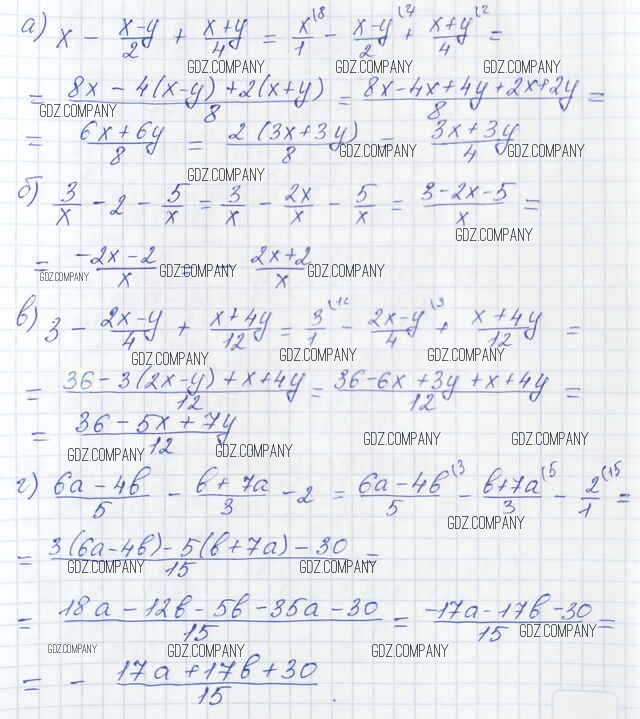 а) x - (x-y)/2 + (x+y)/4 = x/1 (8 - (x-y)/2 (4 + (x+y)/4 (2 =
GDZ.COMPANY GDZ.COMPANY GDZ.COMPANY
= (8x - 4(x-y) + 2(x+y))/8 = (8x - 4x + 4y + 2x + 2y)/8 =
GDZ.COMPANY
= (6x + 6y)/8 = (2(3x+3y))/8 = (3x + 3y)/4
GDZ.COMPANY GDZ.COMPANY
GDZ.COMPANY
б) 3/x - 2 - 5/x = 3/x - 2x/x - 5/x = (3 - 2x - 5)/x =
GDZ.COMPANY
= (-2x - 2)/x = - (2x + 2)/x
GDZ.COMPANY GDZ.COMPANY GDZ.COMPANY
в) 3 - (2x-y)/4 + (x+4y)/12 = 3/1 (12 - (2x-y)/4 (3 + (x+4y)/12 =
GDZ.COMPANY GDZ.COMPANY GDZ.COMPANY
= (36 - 3(2x-y) + x + 4y)/12 = (36 - 6x + 3y + x + 4y)/12 =
= (36 - 5x + 7y)/12
GDZ.COMPANY GDZ.COMPANY
GDZ.COMPANY GDZ.COMPANY
г) (6a - 4b)/5 - (b + 7a)/3 - 2 = (6a - 4b)/5 (3 - (b+7a)/3 (5 - 2/1 (15 =
GDZ.COMPANY
= (3(6a-4b) - 5(b+7a) - 30)/15 =
GDZ.COMPANY GDZ.COMPANY
= (18a - 12b - 5b - 35a - 30)/15 = (-17a - 17b - 30)/15 =
GDZ.COMPANY
GDZ.COMPANY GDZ.COMPANY GDZ.COMPANY
= - (17a + 17b + 30)/15.